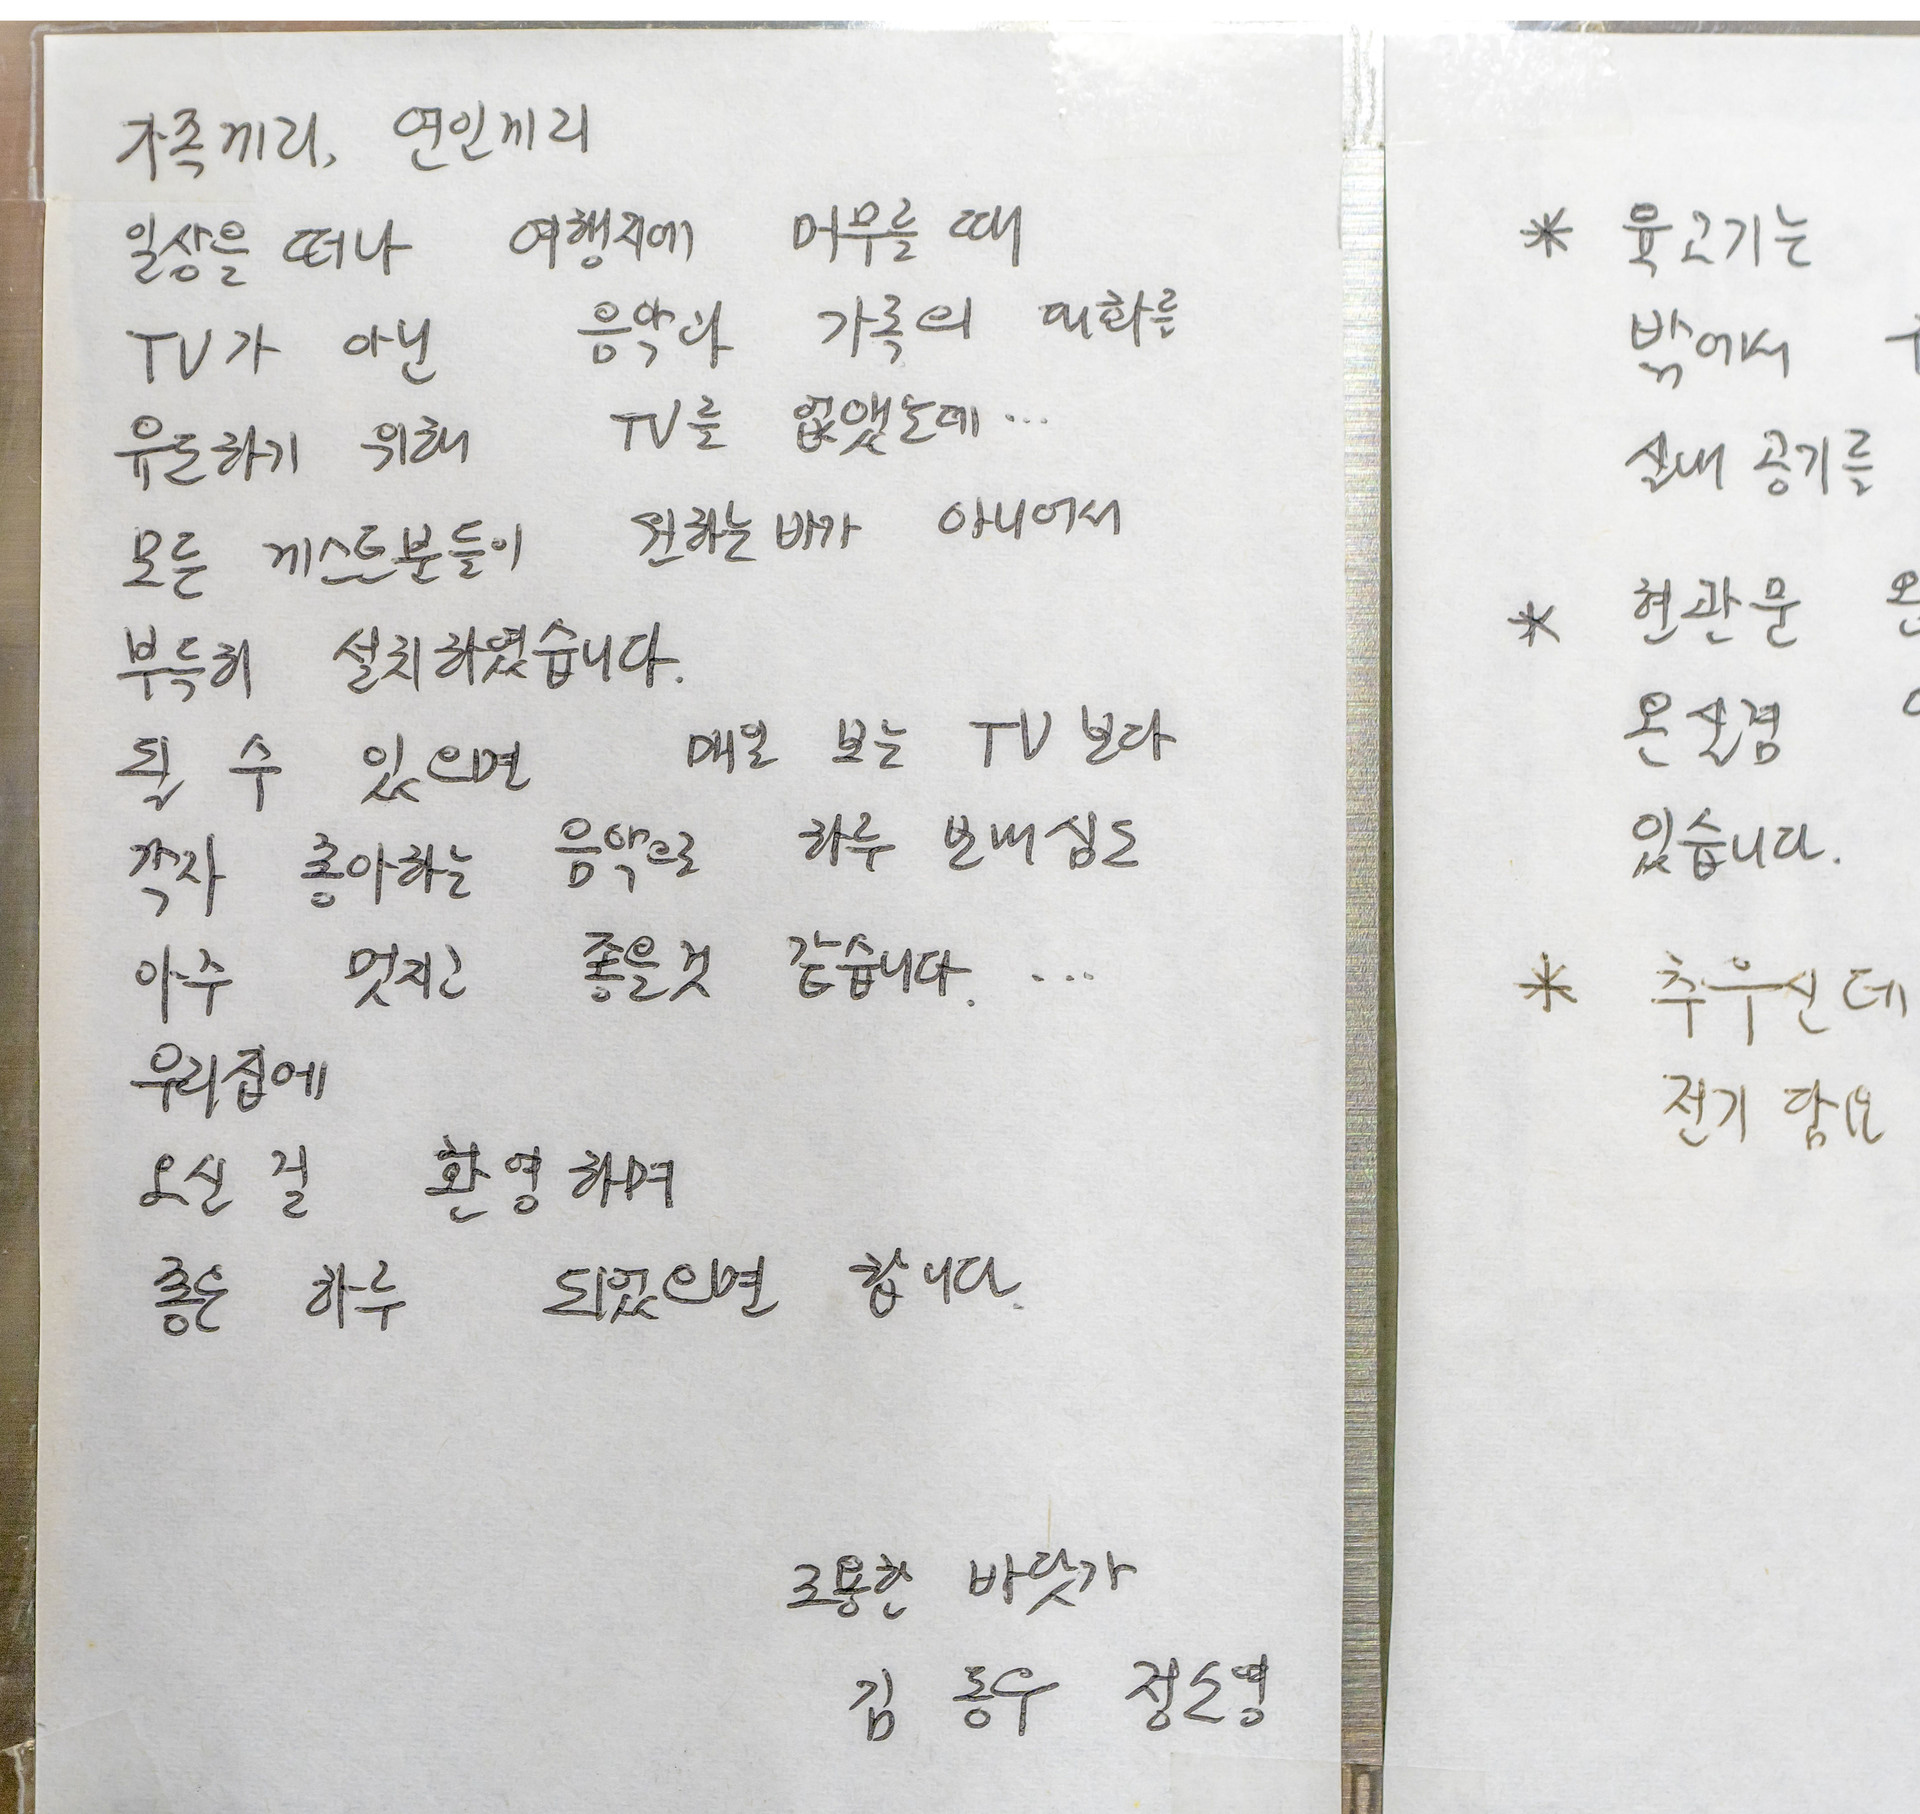 가족끼리, 연인끼리
일상을 떠나 여행지에 머무를 때
TV가 아닌 음악과 가족의 대화를
유도하기 위해 TV를 없앴는데...
모든 게스트분들이 원하는 바가 아니어서
부득히 설치하였습니다.
될 수 있으면 매일 보는 TV 보다
각자 좋아하는 음악으로 하루 보내심도
아주 멋지고 좋을것 같습니다. ...
우리집에
오신 걸 환영하며
좋은 하루 되었으면 합니다.
조용한 바닷가
김동우 정소영
* 육고기는
밖에서
실내 공기를
* 현관문
온실겸
있습니다.
* 추우신데
전기 담요